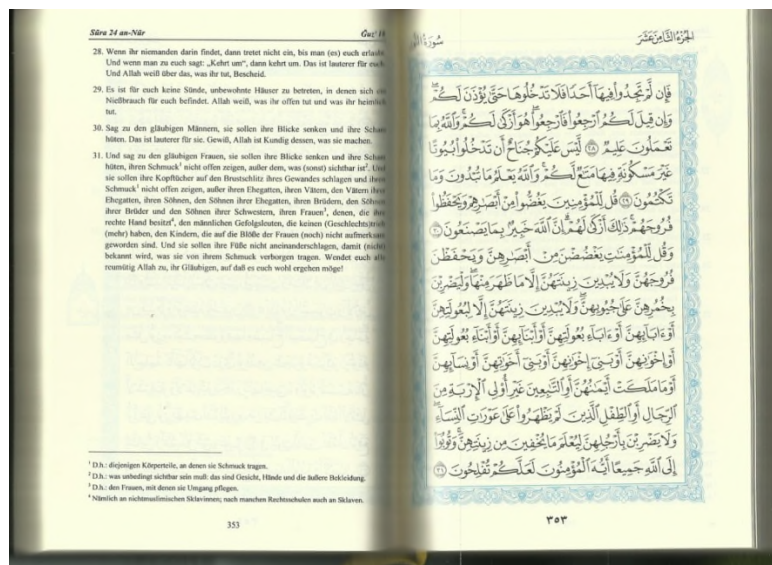 Sūra 24 an-Nūr
Ǧuzʾ
28. Wenn ihr niemanden darin findet, dann tretet nicht ein, bis man (es) euch erlaubt.
Und wenn man zu euch sagt: „Kehrt um“, dann kehrt um. Das ist lauterer für euch.
Und Allah weiß über das, was ihr tut, Bescheid.
29. Es ist für euch keine Sünde, unbewohnte Häuser zu betreten, in denen sich ein
Nießbrauch für euch befindet. Allah weiß, was ihr offen tut und was ihr heimlich
tut.
30. Sag zu den gläubigen Männern, sie sollen ihre Blicke senken und ihre Scham
hüten. Das ist lauterer für sie. Gewiß, Allah ist Kundig dessen, was sie machen.
31. Und sag zu den gläubigen Frauen, sie sollen ihre Blicke senken und ihre Scham
hüten, ihren Schmuck¹ nicht offen zeigen, außer dem, was (sonst) sichtbar ist². Und
sie sollen ihre Kopftücher auf den Brustschlitz ihres Gewandes schlagen und ihren
Schmuck¹ nicht offen zeigen, außer ihren Ehegatten, ihren Vätern, den Vätern ihrer
Ehegatten, ihren Söhnen, den Söhnen ihrer Ehegatten, ihren Brüdern, den Söhnen
ihrer Brüder und den Söhnen ihrer Schwestern, ihren Frauen³, denen, die ihre
rechte Hand besitzt⁴, den männlichen Gefolgsleuten, die keinen (Geschlechts)trieb
(mehr) haben, den Kindern, die auf die Blöße der Frauen (noch) nicht aufmerksam
geworden sind. Und sie sollen ihre Füße nicht aneinanderschlagen, damit (nicht)
bekannt wird, was sie von ihrem Schmuck verborgen tragen. Wendet euch alle
reumütig Allah zu, ihr Gläubigen, auf daß es euch wohl ergehen möge!
¹ D.h.: diejenigen Körperteile, an denen sie Schmuck tragen.
² D.h.: was unbedingt sichtbar sein muß: das sind Gesicht, Hände und die äußere Bekleidung.
³ D.h.: den Frauen, mit denen sie Umgang pflegen.
⁴ Nämlich an nichtmuslimischen Sklavinnen; nach manchen Rechtsschulen auch an Sklaven.
353
الجزء الثامن عشر
سورة النور
فَإِن لَّمْ تَجِدُوا فِيهَا أَحَدًا فَلَا تَدْخُلُوهَا حَتَّىٰ يُؤْذَنَ لَكُمْ ۖ
وَإِن قِيلَ لَكُمُ ارْجِعُوا فَارْجِعُوا ۖ هُوَ أَزْكَىٰ لَكُمْ ۚ وَاللَّهُ بِمَا
تَعْمَلُونَ عَلِيمٌ ٢٨ لَّيْسَ عَلَيْكُمْ جُنَاحٌ أَن تَدْخُلُوا بُيُوتًا
غَيْرَ مَسْكُونَةٍ فِيهَا مَتَاعٌ لَّكُمْ ۚ وَاللَّهُ يَعْلَمُ مَا تُبْدُونَ وَمَا
تَكْتُمُونَ ٢٩ قُل لِّلْمُؤْمِنِينَ يَغُضُّوا مِنْ أَبْصَارِهِمْ وَيَحْفَظُوا
فُرُوجَهُمْ ۚ ذَٰلِكَ أَزْكَىٰ لَهُمْ ۗ إِنَّ اللَّهَ خَبِيرٌ بِمَا يَصْنَعُونَ ٣٠
وَقُل لِّلْمُؤْمِنَاتِ يَغْضُضْنَ مِنْ أَبْصَارِهِنَّ وَيَحْفَظْنَ
فُرُوجَهُنَّ وَلَا يُبْدِينَ زِينَتَهُنَّ إِلَّا مَا ظَهَرَ مِنْهَا ۖ وَلْيَضْرِبْنَ
بِخُمُرِهِنَّ عَلَىٰ جُيُوبِهِنَّ ۖ وَلَا يُبْدِينَ زِينَتَهُنَّ إِلَّا لِبُعُولَتِهِنَّ
أَوْ آبَائِهِنَّ أَوْ آبَاءِ بُعُولَتِهِنَّ أَوْ أَبْنَائِهِنَّ أَوْ أَبْنَاءِ بُعُولَتِهِنَّ
أَوْ إِخْوَانِهِنَّ أَوْ بَنِي إِخْوَانِهِنَّ أَوْ بَنِي أَخَوَاتِهِنَّ أَوْ نِسَائِهِنَّ
أَوْ مَا مَلَكَتْ أَيْمَانُهُنَّ أَوِ التَّابِعِينَ غَيْرِ أُولِي الْإِرْبَةِ مِنَ
الرِّجَالِ أَوِ الطِّفْلِ الَّذِينَ لَمْ يَظْهَرُوا عَلَىٰ عَوْرَاتِ النِّسَاءِ ۖ
وَلَا يَضْرِبْنَ بِأَرْجُلِهِنَّ لِيُعْلَمَ مَا يُخْفِينَ مِن زِينَتِهِنَّ ۚ وَتُوبُوا
إِلَى اللَّهِ جَمِيعًا أَيُّهَ الْمُؤْمِنُونَ لَعَلَّكُمْ تُفْلِحُونَ ٣١
٣٥٣